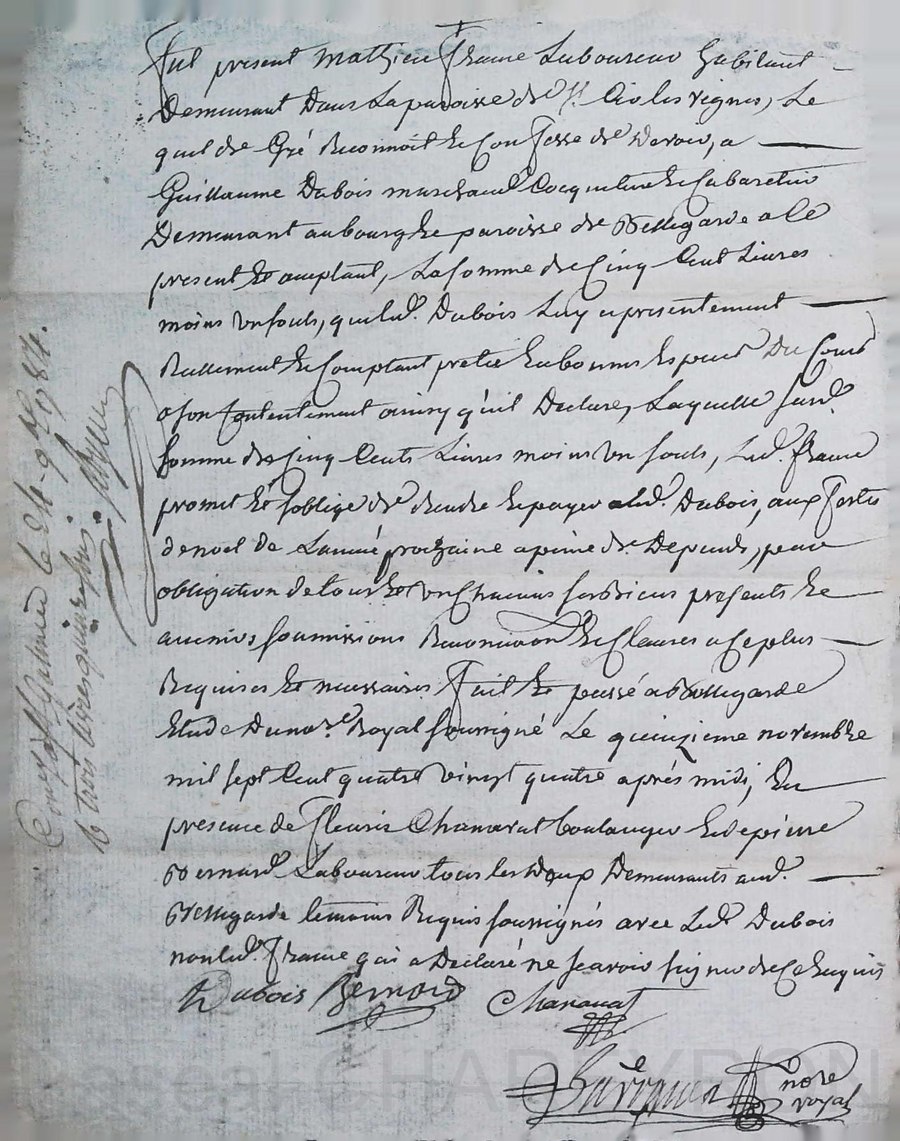 fut present mathieu frame Laboureur habitant
Demeurant Dans La paroisse de St Cir les vignes, Le
quel de Gré Reconnoit & Confesse de Devoir, a
Guillaume Dubois marchand Cocquetier & Cabaretier
Demeurant au bourg & paroisse de Bellegarde a ce
present & aceptant, La somme de Cinq Cent Livres
moins un souls, que led. Dubois Luy a presentement
Reellement & Comptant preté en bonnes Especes Du Cours
a son Contentement ainsy qu'il Declare, Laquelle surd.
somme de Cinq Cents Livres moins un souls, Led. frame
promet & s'oblige de rendre & payer aud. Dubois, aux fortes
de noel de L'année prochaine a peine de Depends, pour
obligation de tous & un Chacuns ses biens presents &
avenirs soumissions Renonciation & Clauses a Ce plus
Requises & necessaires fait & passé a Bellegarde
Etude Du no.re Royal soussigné Le quinzieme novembre
mil sept Cent quatre vingt quatre après midi, En
presence de fleurie Chanavat boulanger & de pierre
Bernard Laboureur tous les deux Demeurants aud.
Bellegarde temoins Requis soussignés avec Led. Dubois
non led. frame qui a Declaré ne scavoir signer de Ce Enquis
Dubois Bernard Chanavat
nore
royal
Con.lé a St Galmier le 24 9bre 1784.
R trois livres quinze sols.
Pascal CHAMBEYRON